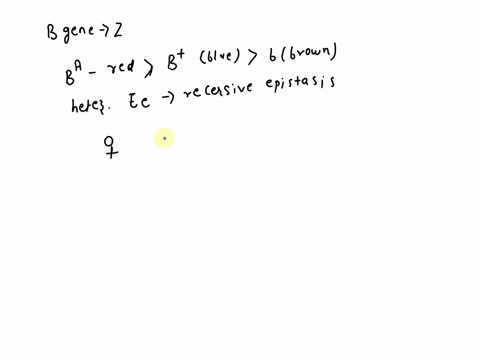 B gene → Z
B^A - red > B^+ (blue) > b (brown)
hete}. Ee → recersive epistasis
♀